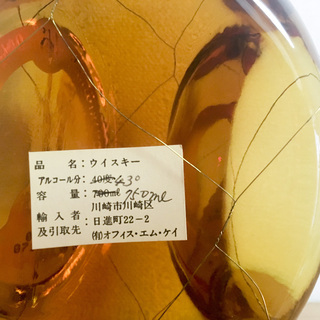 品　　名：ウイスキー
アルコール分：40度 43°
容　　量：700ml 750ml
川崎市川崎区
輸 入 者：日進町22-2
及引取先　㈲オフィス・エム・ケイ